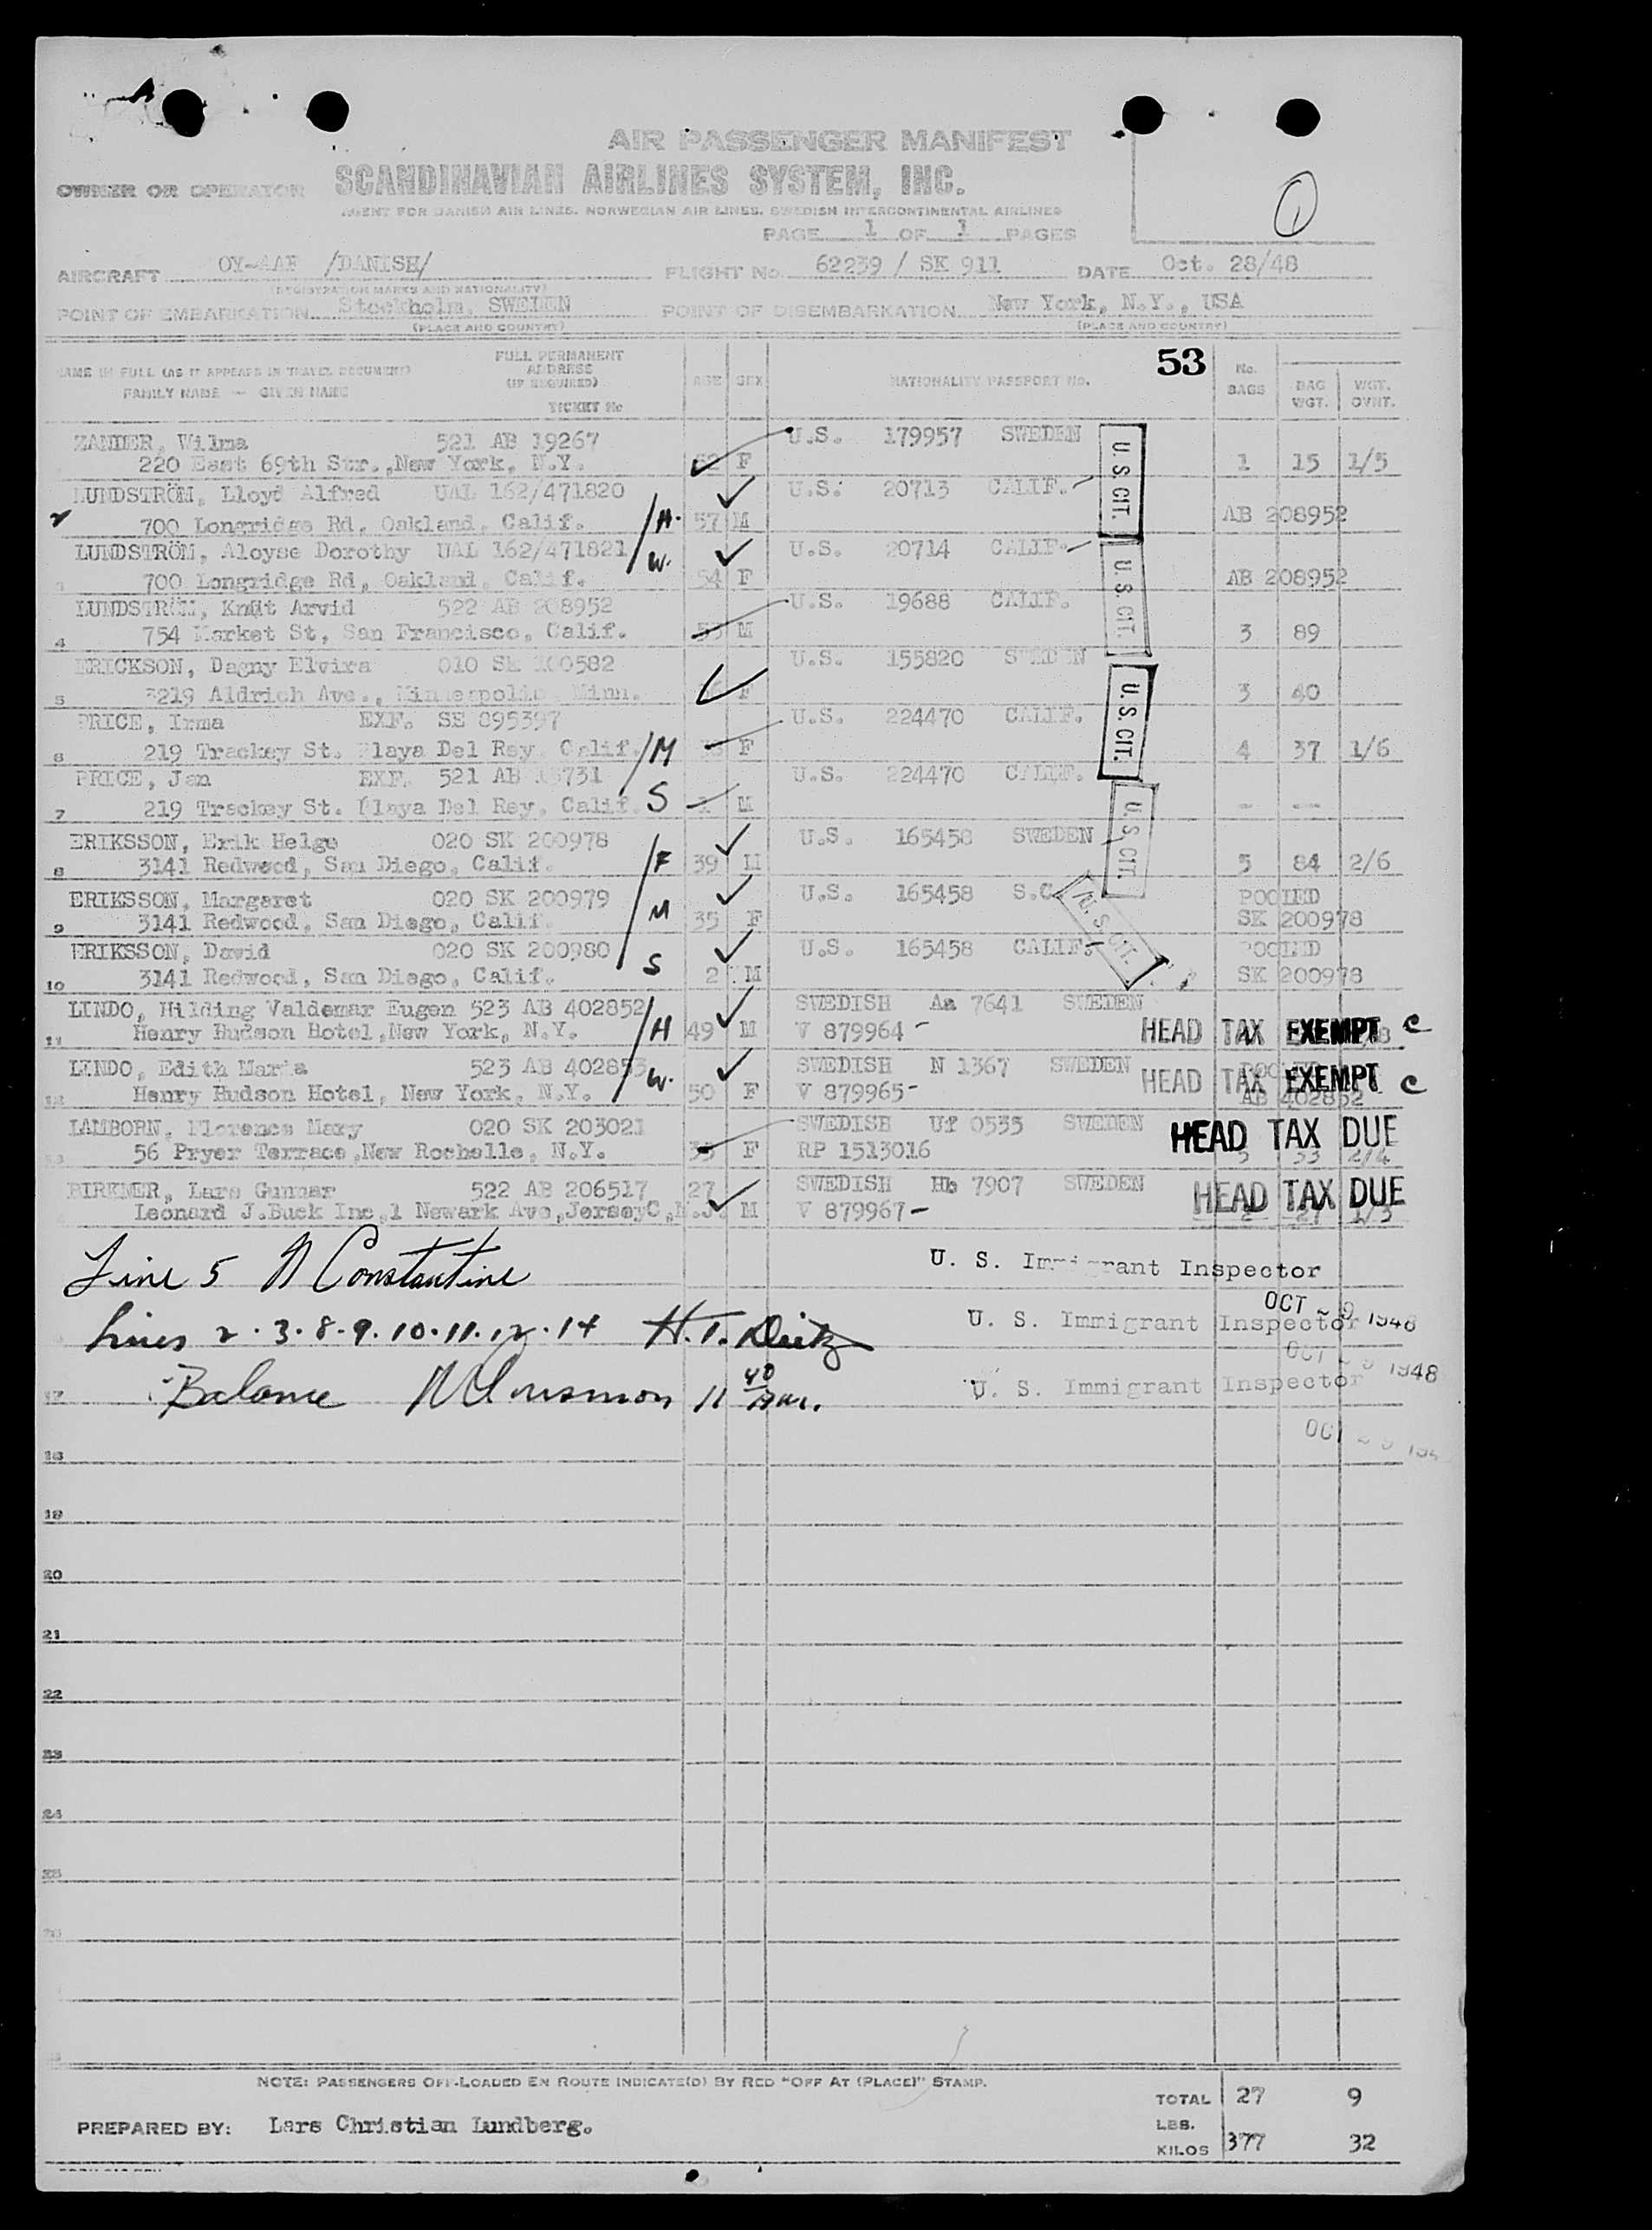 AIR PASSENGER MANIFEST
OWNER OR OPERATOR SCANDINAVIAN AIRLINES SYSTEM, INC.
AGENT FOR DANISH AIR LINES. NORWEGIAN AIR LINES. SWEDISH INTERCONTINENTAL AIRLINES
1
PAGE 1 OF 1 PAGES
AIRCRAFT OY-AAF /DANISH/ FLIGHT No. 62239 / SK 911 DATE Oct. 28/48
(REGISTRATION MARKS AND NATIONALITY)
POINT OF EMBARKATION Stockholm, SWEDEN POINT OF DISEMBARKATION New York, N.Y., USA
(PLACE AND COUNTRY) (PLACE AND COUNTRY)
NAME IN FULL (AS IT APPEARS IN TRAVEL DOCUMENT) FULL PERMANENT ADDRESS (IF REQUIRED) AGE SEX NATIONALITY PASSPORT No. 53 No. BAGS BAG WGT. WGT. OVNT.
FAMILY NAME — GIVEN NAME TICKET No
ZANDER, Wilma 521 AB 19267 U.S. 179957 SWEDEN U.S. CIT.
220 East 69th Str., New York, N.Y. F 1 15 1/5
LUNDSTRÖM, Lloyd Alfred UAL 162/471820 U.S. 20713 CALIF.
2 700 Longridge Rd, Oakland, Calif. H. 57 M AB 208952
LUNDSTRÖM, Aloyse Dorothy UAL 162/471821 W. U.S. 20714 CALIF. U.S. CIT.
3 700 Longridge Rd, Oakland, Calif. 54 F AB 208952
LUNDSTRÖM, Knut Arvid 522 AB 208952 U.S. 19688 CALIF.
4 754 Market St, San Francisco, Calif. M 3 89
ERICKSON, Dagny Elvira 010 SK 100582 U.S. 155820 SWEDEN
5 3219 Aldrich Ave., Minneapolis Minn. F 3 40
PRICE, Irma EXF. SE 895397 U.S. 224470 CALIF. U.S. CIT.
6 219 Trackey St. Playa Del Rey, Calif. M F 4 37 1/6
PRICE, Jan EXF. 521 AB 731 U.S. 224470 CALIF.
7 219 Trackey St. Playa Del Rey, Calif. S M - --
ERIKSSON, Erik Helge 020 SK 200978 U.S. 165458 SWEDEN U.S. CIT.
8 3141 Redwood, San Diego, Calif. F 39 M 5 84 2/6
ERIKSSON, Margaret 020 SK 200979 U.S. 165458 S.C. POOLED
9 3141 Redwood, San Diego, Calif. M 35 F SK 200978
ERIKSSON, David 020 SK 200980 U.S. 165458 CALIF. U.S. CIT. POOLED
10 3141 Redwood, San Diego, Calif. S 2 M SK 200978
LINDO, Hilding Valdemar Eugen 523 AB 402852 SWEDISH Aa 7641 SWEDEN
11 Henry Hudson Hotel, New York, N.Y. H 49 M V 879964 - HEAD TAX EXEMPT C
LINDO, Edith Maria 523 AB 402853 W. SWEDISH N 1367 SWEDEN
12 Henry Hudson Hotel, New York, N.Y. 50 F V 879965- HEAD TAX EXEMPT C
AB 402852
LAMBORN, Florence Mary 020 SK 203021 SWEDISH Uf 0535 SWEDEN HEAD TAX DUE
13 56 Pryer Terrace, New Rochelle, N.Y. 35 F RP 1513016 3 53 2/4
BIRKNER, Lars Gunnar 522 AB 206517 27 SWEDISH Hb 7907 SWEDEN HEAD TAX DUE
Leonard J.Buck Inc,1 Newark Ave,JerseyC,N.J. M V 879967-
Line 5 N Constantine U. S. Immigrant Inspector
Lines 2.3.8.9.10.11.12.14 H.T. Dietz U. S. Immigrant Inspector OCT 29 1948
Balance 11 40 A.M. U. S. Immigrant Inspector OCT 29 1948
17 OCT 29 194
18
19
20
21
22
23
24
25
26
NOTE: PASSENGERS OFF-LOADED EN ROUTE INDICATE(D) BY RED "OFF AT (PLACE)" STAMP.
TOTAL 27 9
PREPARED BY: Lars Christian Lundberg. LBS.
KILOS 377 32